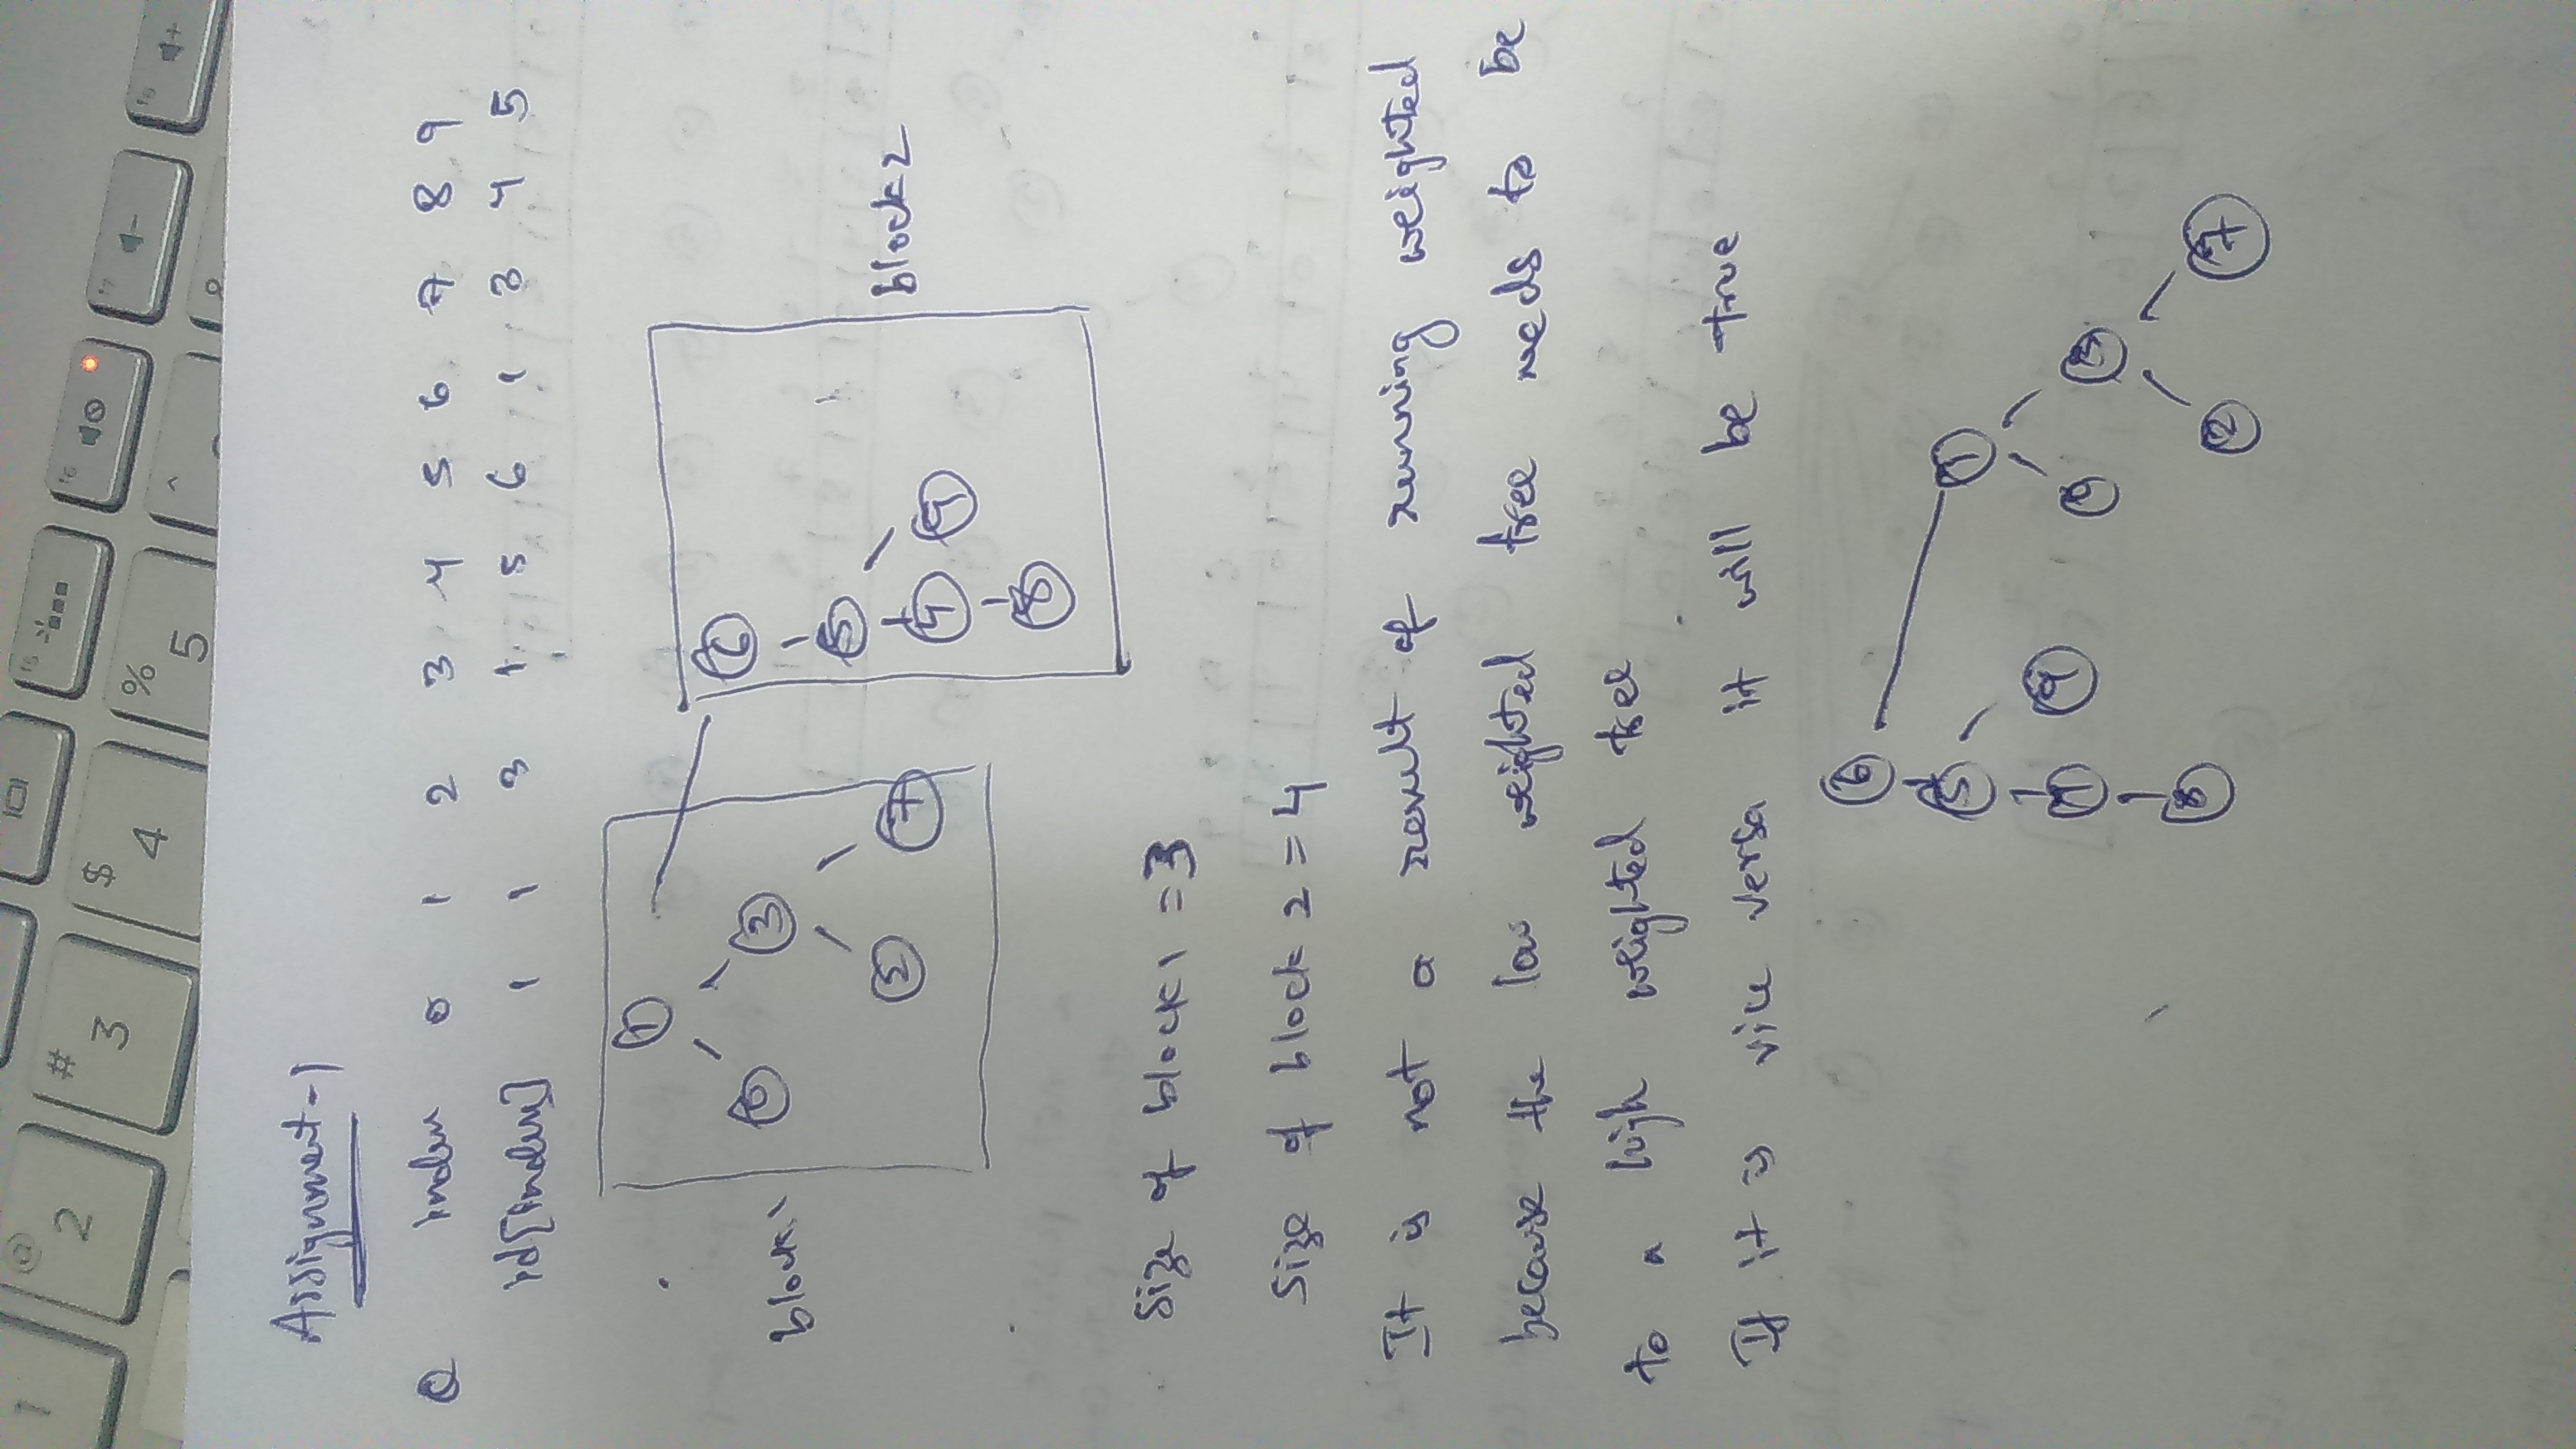 1
@
2
#
3
$
4
%
5
^
f5
f6
f7
f8
Assignment-1
Q index 0 1 2 3 4 5 6 7 8 9
id[index] 1 1 3 1 5 6 1 3 4 5
1
6
0 3
block1
5
2 7
block2
4 9
8
Size of block1 = 3
Size of block 2 = 4
It is not a result of running weighted
because the low weighted tree needs to be
to a high weighted tree
If it is vice versa it will be true
6
5 1
4 9 0 3
8 2 7